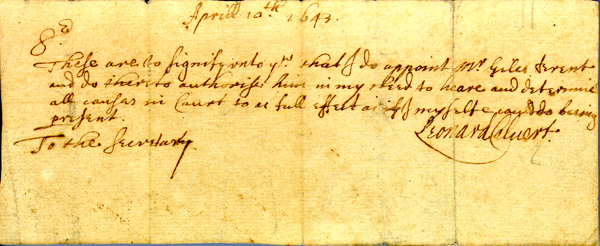 Aprill 10th 1643.
Sr
These are to signify vnto yu. that I do appoint Mr Giles Brent
and do thereto authorise him in my steed to heare and determine
all causes in Court to as full effect as if I my self e could do being
present.
Leonard Calvert.
To the Secretary